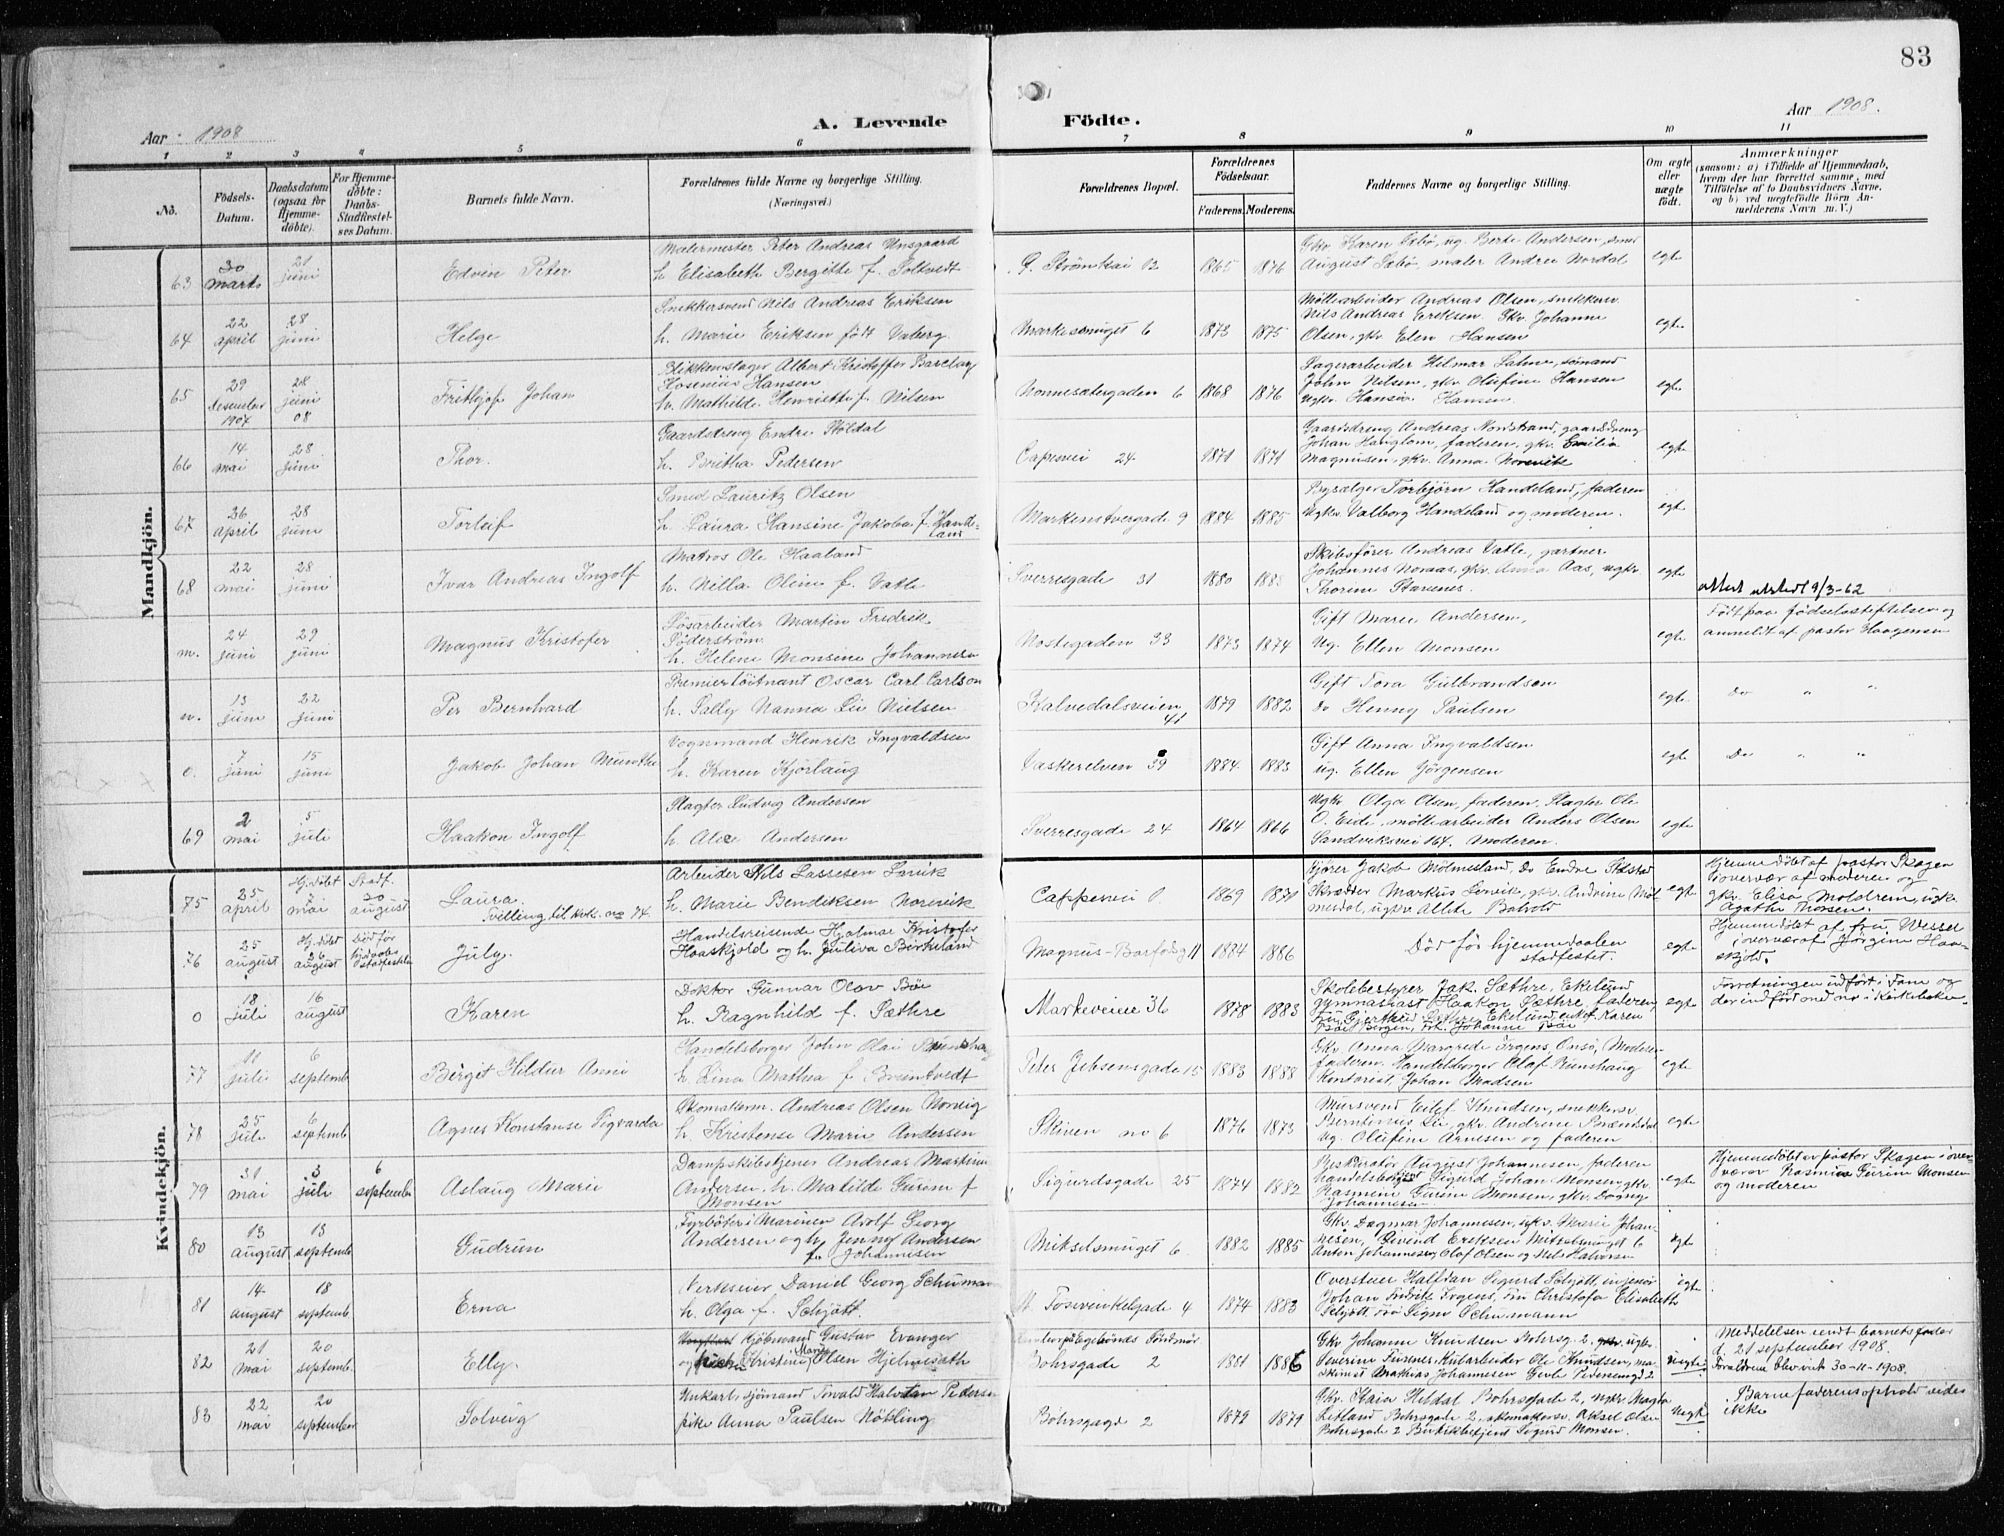 83
Aar 1908
A. Levende
Födte.
Aar 1908.
1 2 3 4 5 6 7 8 9 10 11
No.
Födsels-Datum.
Daabsdatum (ogsaa for Hjemmedöbte).
For Hjemmedöbte: Daabs-Stadfæstelses Datum.
Barnets fulde Navn.
Forældrenes fulde Navne og borgerlige Stilling.
(Næringsvei.)
Forældrenes Bopæl.
Forældrenes Födselsaar.
Faderens. Moderens.
Faddernes Navne og borgerlige Stilling.
Om ægte eller uægte födt.
Anmærkninger
(saasom: a) i Tilfælde af Hjemmedaab, hvem der har forrettet samme, med Tilföielse af to Daabsvidners Navne, og b) ved uegtefödte Börn Anmelderens Navn m. V.)
Mandkjön.
63 30 marts 21 juni Edvin Peter
Malermester Peter Andreas Unsgaard
h. Elisabeth Bergitte f. Soltvedt
C. Strömkai 12 1865 1876
Gkv Karen Sæbö, ug. Berte Andersen, smed
August Sæbö, maler Andrea Nordal
egte
64 22 april 28 juni Helge
Snekkersvend Nils Andreas Eriksen
h. Marie Eriksen födt Vaberg.
Markesmuget 6 1873 1875
Möllearbeider Andreas Olsen, snekkersv.
Nils Andreas Eriksen. Gkv Johanne
Olsen, gkv Elen Hansen
egte
65 29 desember 1907 28 juni 08 Frithjof Johan
Blikkenslager Albert Kristoffer Barclay
Hosenius Hansen
h. Mathilde Henriette f. Nilsen
Nonnesætergaden 6 1868 1876
Lagerarbeider Hilmar Salme, sömand
John Nilsen, gkv Olufine Hansen
Ugkv. Hansine Hansen.
egte
66 14 mai 28 juni Thor.
Gaardsdreng Endre Stöldal
h. Britha Pedersen
Capesvei 24 1871 1871
Gaardsdreng Andreas Nordstrand, gaardsdreng
Johan Hauglom, faderen, gkv. Emilie
Magnusen, gkv. Anna Norevik
egte
67 26 april 28 juni Torleif
Smed Lauritz Olsen
h. Laura Hansine Jakoba f. Handeland
Markenstvergade 9 1884 1885
Bysælger Torbjörn Handeland, faderen
Ugkv. Valborg Handeland og moderen.
egte
68 22 mai 28 juni Ivar Andreas Ingolf
Matros Ole Haaland
h. Nilla Oline f. Vatle
Sverresgade 31 1880 1888
Skibsförer Andreas Vatle, gartner
Johannes Noraas, gkv. Anna Aas, ugkv
Thorine Starenes.
egte
attest utstedt 9/3-62
m. 24 juni 29 juni Magnus Kristofer
Lösarbeider Martin Fredrik
Söderström.
h. Helene Monsine Johannesen
Nostegaden 33 1873 1874
Gift Marie Andersen,
Ug. Ellen Monsen
egte
Födt paa födselsstiftelsen og
anmeldt af pastor Haagensen
n. 13 juni 22 juni Per Bernhard
Premierlöitnant Oscar Carl Carlson
h. Sally Nanna Lie Nielsen
Kalvedalsveien 41 1879 1882
Gift Tora Gulbrandsen
Do Henny Paulsen
egte
Do " "
o. 7 juni 15 juni Jakob Johan Munthe
Vognmand Henrik Ingvaldsen
h. Karen Kjörlaug
Vaskerelven 39 1884 1883
Gift Anna Ingvaldsen
ug. Ellen Jörgensen
egte
Do " "
69 2 mai 5 juli Haakon Ingolf
Slagter Ludvig Andersen
h. Alce Andersen
Sverresgade 24 1864 1866
Ugkv Olga Olsen, faderen, Slagter Ole
O. Eide, möllearbeider Anders Olsen
Sandviksvei 164. Moderen.
egte
Kvindekjön.
75 25 april Hj. döbt mai Stadf. 30 august Laura.
Tvilling til kvk. no 74.
Arbeider Nils Lassesen
h. Marie Bendiksen Norevik
Cappesvei 1869 1871
Kjörer Jakob Mölmesland, Do Endre
Skrædder Markus
egte
Hjemmedöbt af pastor Skagen
i overvær af moderen og
gkv. Elisa Moldrem, ugk.
Agathe Monsen.
76 25 august Hj. döbt 26 august Död för hj.daabs stadfestelse July.
Handelsreisende Hjalmar Kristofer
Haaskjold og h. Juliva Birkeland
Magnus-Barfodsg 11 1884 1886
Död för hjemmedaaben
stadfestet.
egte
Hjemmedöbt af fru Wessel
i overvær af Jörgine Haaskjold.
0 18 juli 16 august Karen
Doktor Gunnar Olav Böe
h. Ragnhild f. Sæthre
Markeveien 36 1878 1883
Skolebestyrer Jak. Sæthre, Ekelund
gymnasiast Haakon Sæthre, faderen,
egte
Forretningen udfört i Fane og
der indfört med no i Kirkeboken
77 11 juli 6 septemb Birgit Hildur Anna
Handelsborger John Olai Runshaug
h. Lina Mathea f. Bruntvedt
Peter Jebsensgade 15 1883 1888
Gkv. Anna Margrede Irgens, Onsö, Moderen
faderen. Handelsborger Olaf Runshaug
Kontorist Johan Madsen
egte
78 25 juli 6 septemb Agnes Konstanse Sigvarda
Skomakerm. Andreas Olsen Norvig
h. Kristense Marie Andersen
Skiven no 6 1876 1873
Mursvend Eilef Knudsen, snekkersv.
Berntinus Lie, gkv Andrine Brændsdal
ug. Olufine Arnesen og faderen
egte
79 31 mai 3 juli 6 september Aslaug Marie
Dampskibstjener Andreas Martin
Andersen, h. Matilde Gurine f
Monsen
Sigurdsgade 25 1874 1882
August Johannesen, faderen
handelsborger Sigurd Johan Monsen, gkv.
Rasmine Gurine Monsen, gkv. Dagny
Johannesen
egte
Hjemmedöbt av pastor Skagen i overværar
Rasmine Gurine Monsen
og moderen
80 13 august 13 septemb Gudrun
Fyrböter i Marinen Adolf Georg
Andersen og h. Jenny Andersen
f. Johannesen
Mikelsmuget 6 1882 1885
Gkv. Dagmar Johannesen, ugkv. Marie Johannesen,
Eivind Eriksen Mikelsmuget 6
Anton Johannesen, Olof Olsen og Nils Halvorsen
egte
81 14 august 18 septemb Erna
Verkseier Daniel Georg Schumann
h. Olga f. Schjött
St. Torvinkelgade 4 1874 1883
Overstuer Halfdan Sigurd Schjött, ingeniör
Johan Fredrik Irgens, Fru Christofa Elisabeth
Schjött, Fru Signe Schumann
egte
82 21 mai 20 septemb. Elly
Ungkarl Kjöbmand Gustav Evanger
og piken Kristine Marie Olsen Hjelmesæth
Bohrsgade 2 1881 1886
Gkv Johanne Knudsen Bohrsg. 2, ugkv.
Severine Fusenes, Kularbeider Ole Knudsen, maskinist
Mathias Johannesen
uegte
Meddelelsen sendt barnets fader
d. 21 september 1908.
Forældrene blev viet 30-11-1908.
83 22 mai 20 september Solveig
Unkarl, sjömand Torvald Halvdan Pedersen
pike Anna Paulsen Nötling
Böhrsgagd 2 1879 1879
Gkv. Kaia Hildal Bohrsgade 2, ugkv Magda
Litland Bohrsgade 2, skomakersv. Aksel Olsen
Bohrsgade 2 Sigurd Monsen.
uegte
Barnefaderens ophold vides
ikke